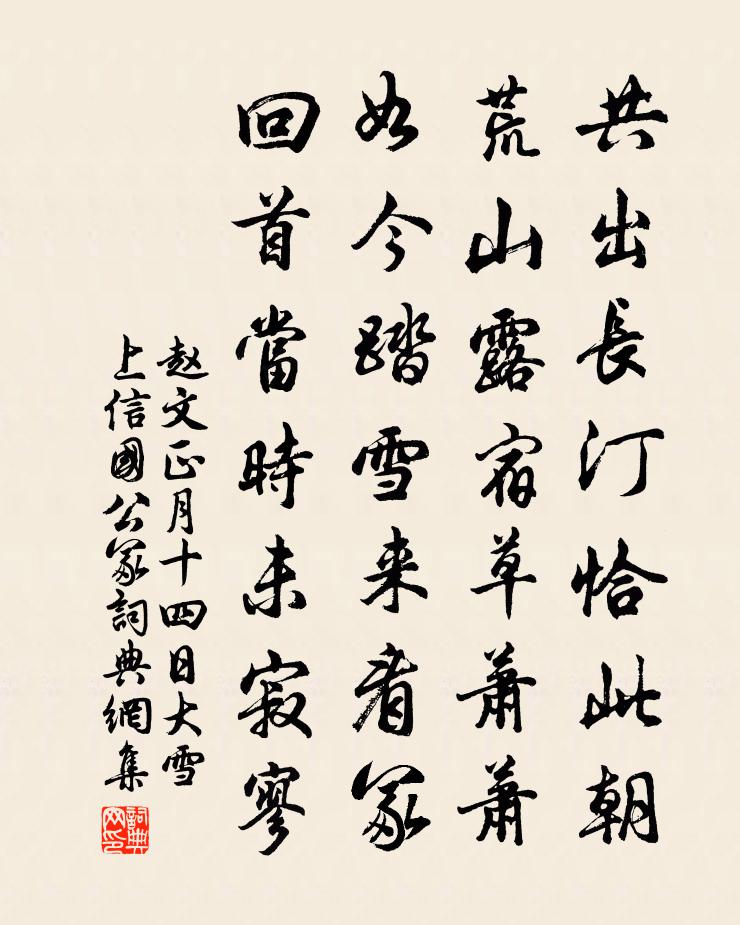 共出長汀恰此朝
荒山露宿草蕭蕭
如今踏雪来看冢
回首當時未寂寥
赵文正月十四日大雪
上信國公冢詞典網集
詞典
网印